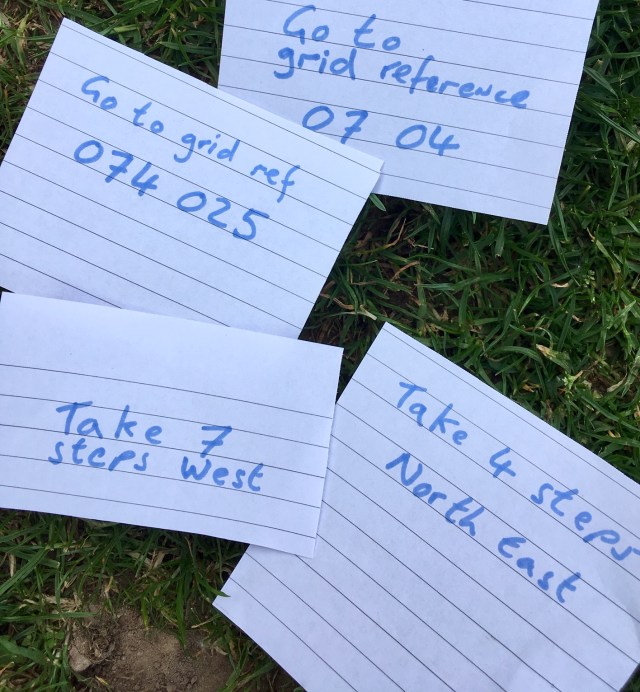 Go to
grid reference
07 04
Go to grid ref
074 025
Take 7
steps West
Take 4 steps
North East